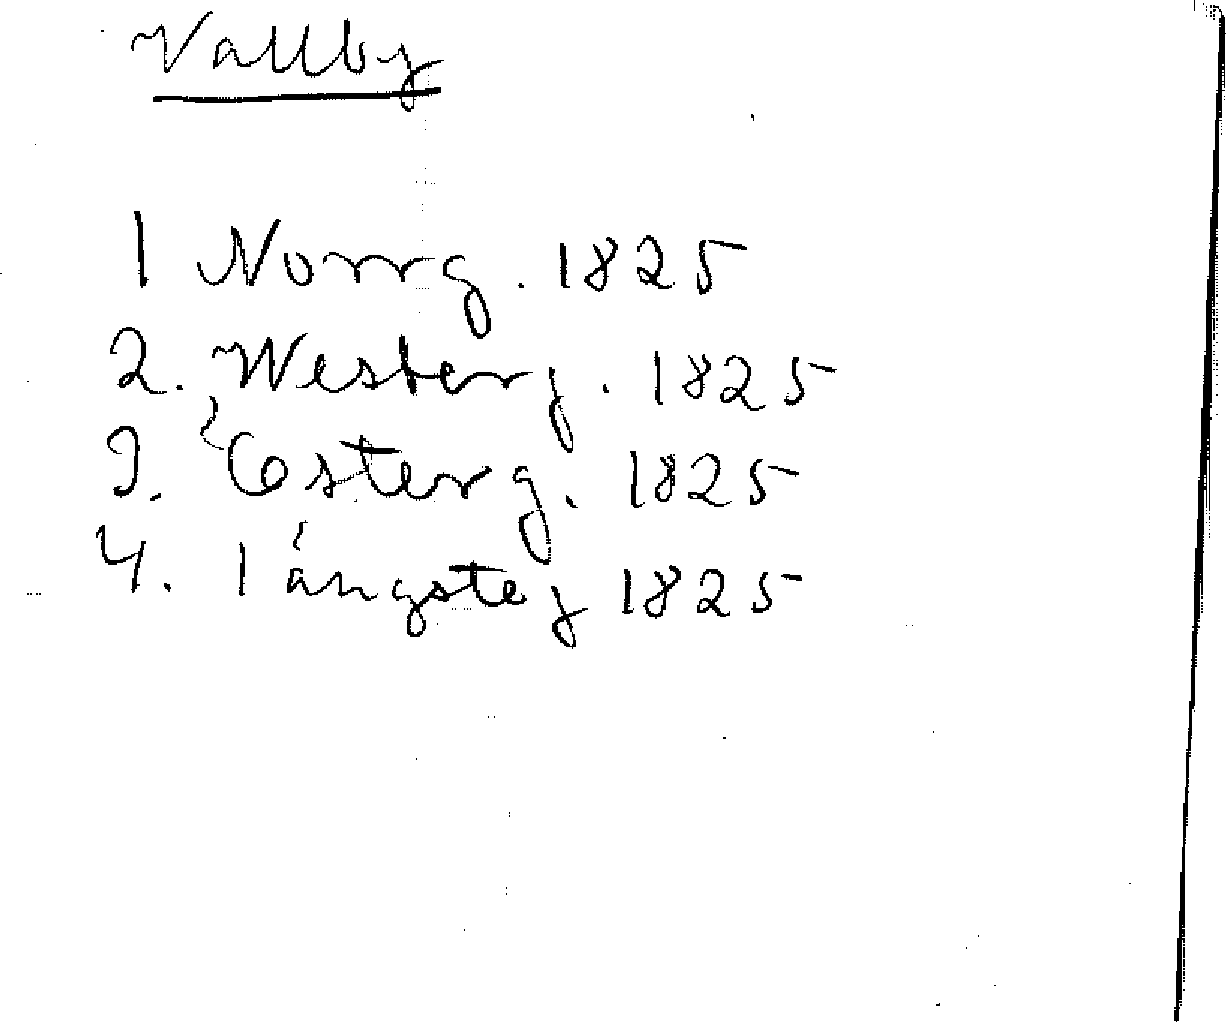 Vallby
1 Norrg. 1825
2. Westerg. 1825
3. Österg. 1825
4. 1825